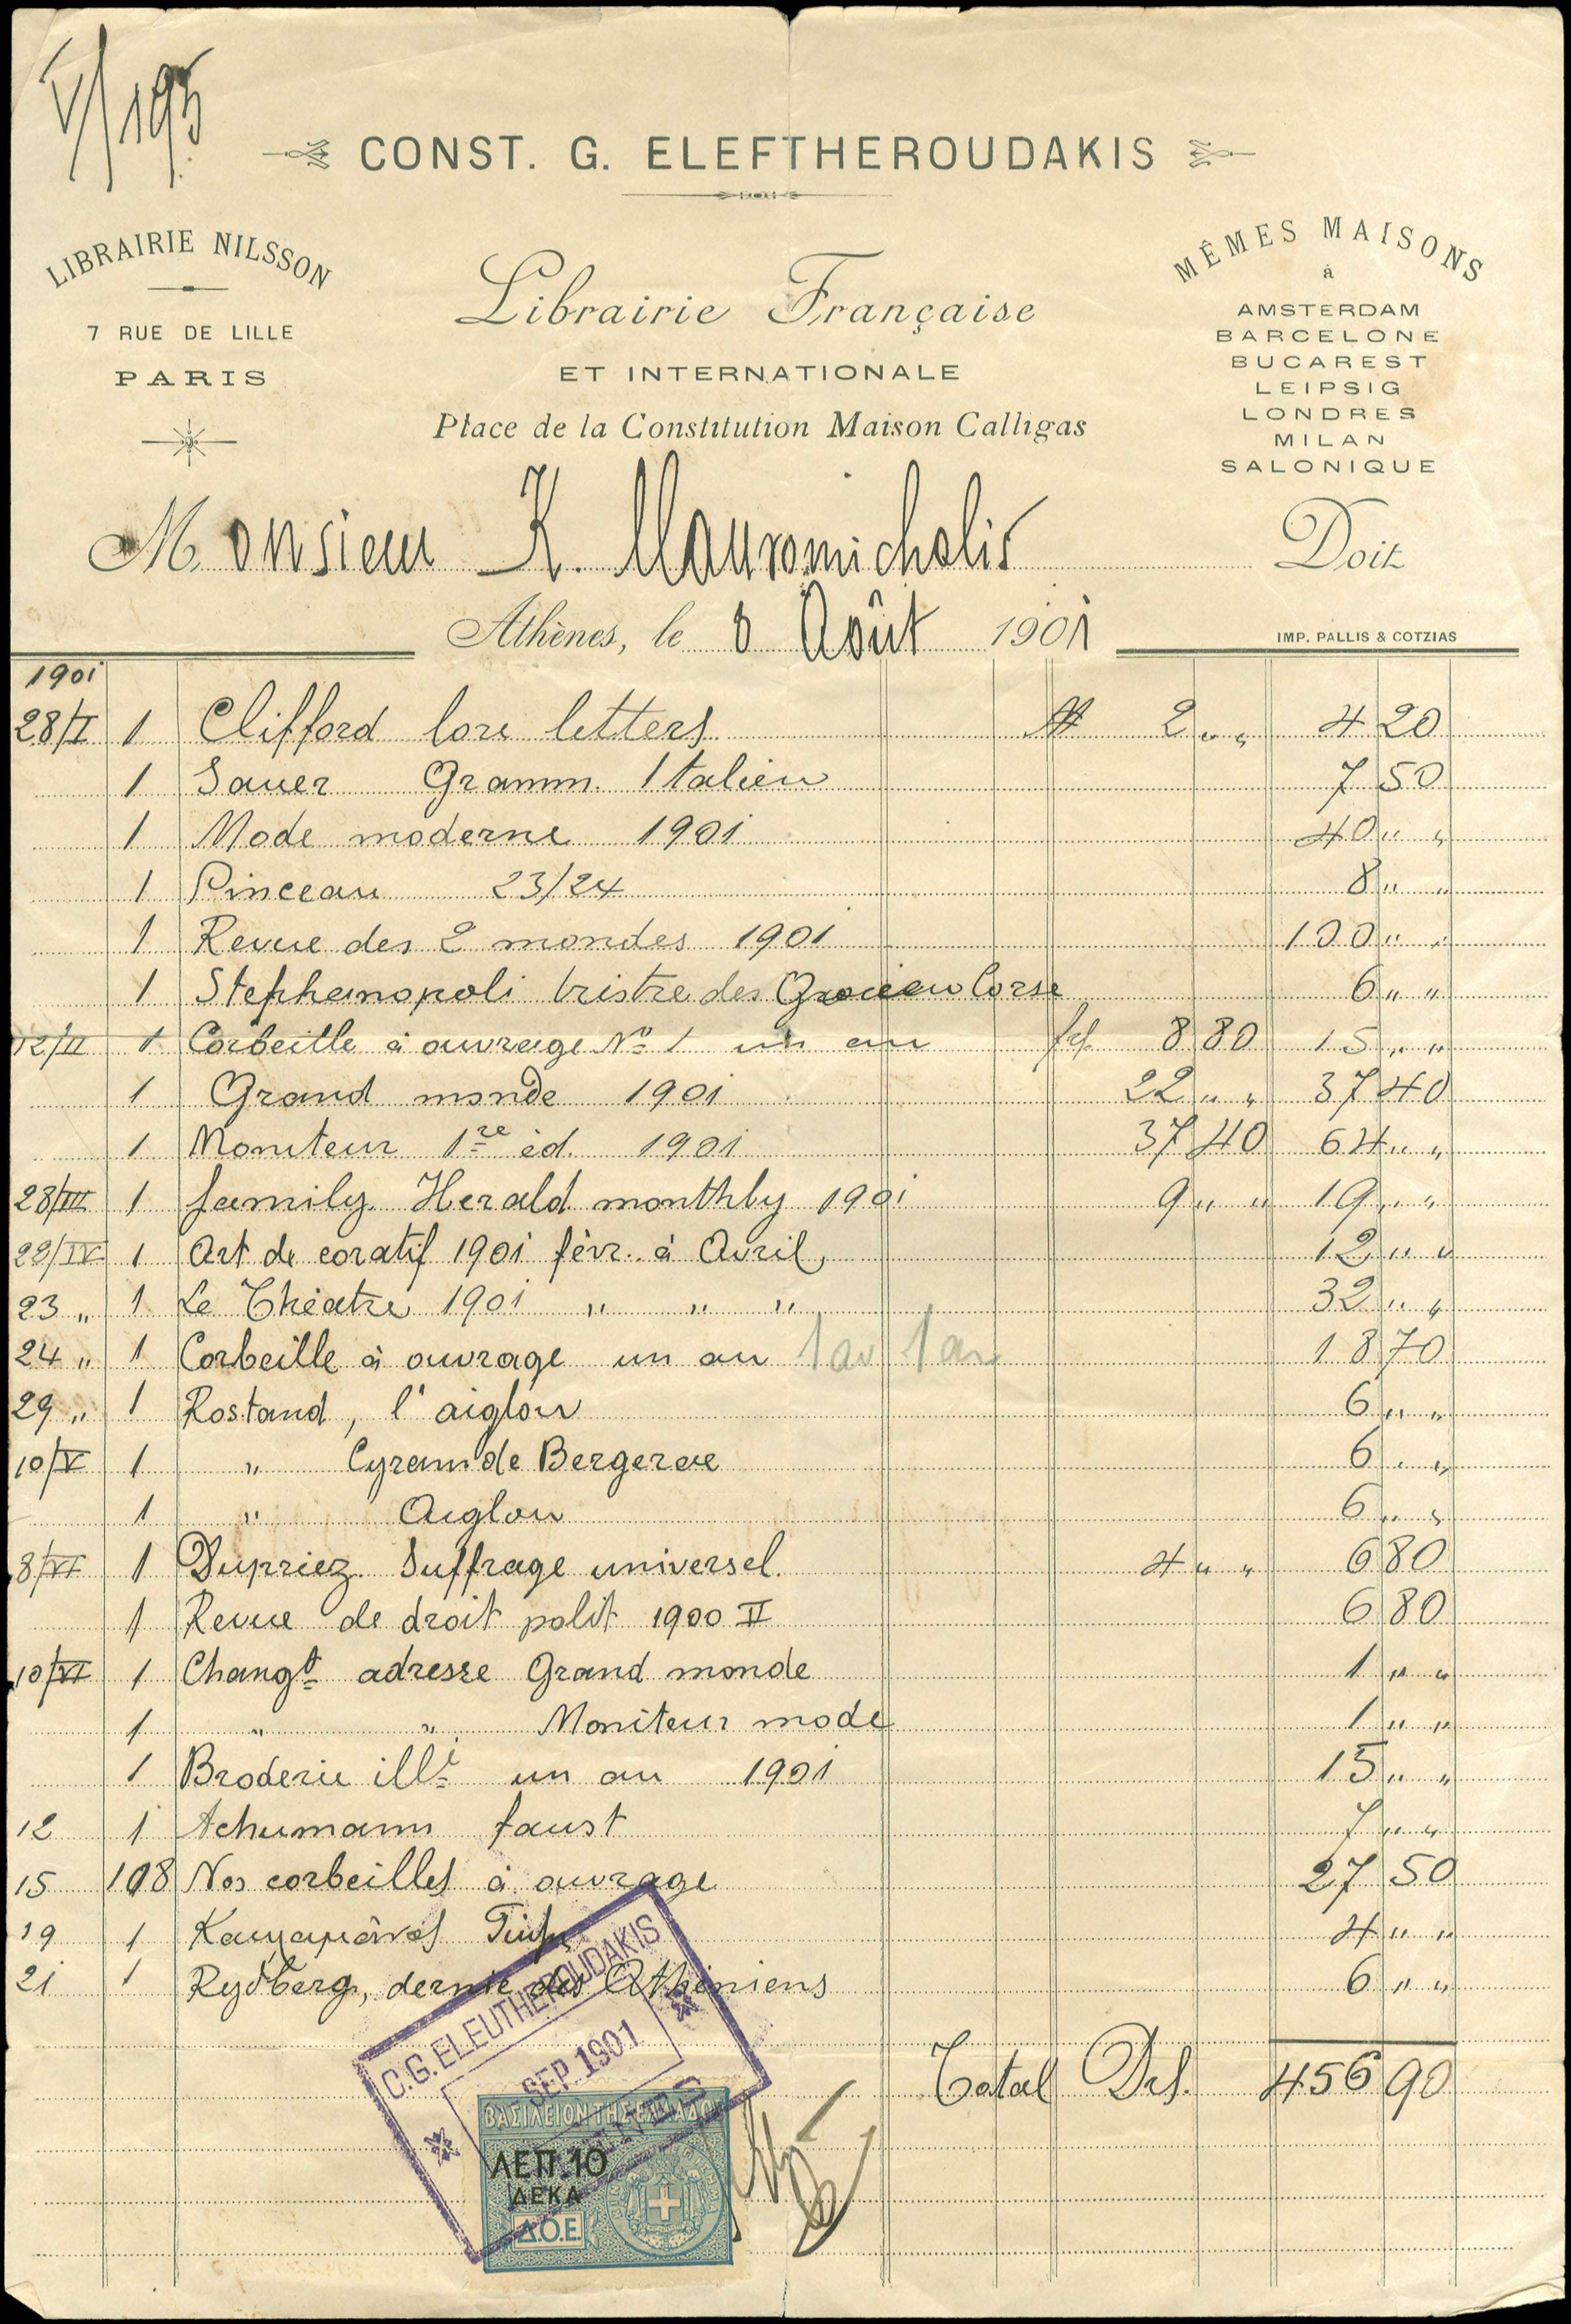 V/195
CONST. G. ELEFTHEROUDAKIS
LIBRAIRIE NILSSON
7 RUE DE LILLE
PARIS
Librairie Française
ET INTERNATIONALE
Place de la Constitution Maison Calligas
MÊMES MAISONS
à
AMSTERDAM
BARCELONE
BUCAREST
LEIPSIG
LONDRES
MILAN
SALONIQUE
Monsieur K. Mauromichalis Doit
Athènes, le 8 Août 1901
IMP. PALLIS & COTZIAS
1901
28/I 1 Clifford love letters 2 " " 4 20
1 Sauer Gramm. Italien 7 50
1 Mode moderne 1901 40 " "
1 Pinceau 23/24 8 " "
1 Revue des 2 mondes 1901 100 " "
1 Stephanopoli des Corse 6 " "
12/II 1 Corbeille à ouvrage No 1 un an 8 80 15 " "
1 Grand monde 1901 22 " " 37 40
1 Moniteur 1re éd. 1901 37 40 64 " "
28/III 1 family Herald monthly 1901 9 " " 19 " "
22/IV 1 Art decoratif 1901 févr. à Avril 12 " "
23 " 1 Le Théatre 1901 " " " 32 " "
24 " 1 Corbeille à ouvrage un an 18 70
29 " 1 Rostand, l'aiglon 6 " "
10/V 1 " Cyrano de Bergerac 6 " "
1 " Aiglon 6 " "
8/VI 1 Dupriez Suffrage universel. 4 " " 6 80
1 Revue de droit polit 1900 II 6 80
10/VI 1 Changt adresse Grand monde 1 " "
1 " " Moniteur mode 1 " "
1 Broderie illé un an 1901 15 " "
12 1 Schumann faust 7 " "
15 108 Nos corbeilles à ouvrage 27 50
19 1 4 " "
21 1 Rydberg, dernier des Athéniens 6 " "
Total Drs. 456 90
C.G. ELEUTHEROUDAKIS
SEP. 1901
ΒΑΣΙΛΕΙΟΝ ΤΗΣ ΕΛΛΑΔΟΣ
ΛΕΠ. 10
ΔΕΚΑ
Δ.Ο.Ε.